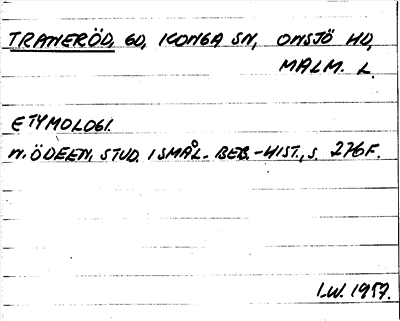 TRANERÖD, GD, KONGA SN, ONSJÖ HD,
MALM. L.
ETYMOLOGI.
N. ÖDEEN, STUD. I SMÅL. BEB.-HIST., S. 276 F.
I.W. 1957.